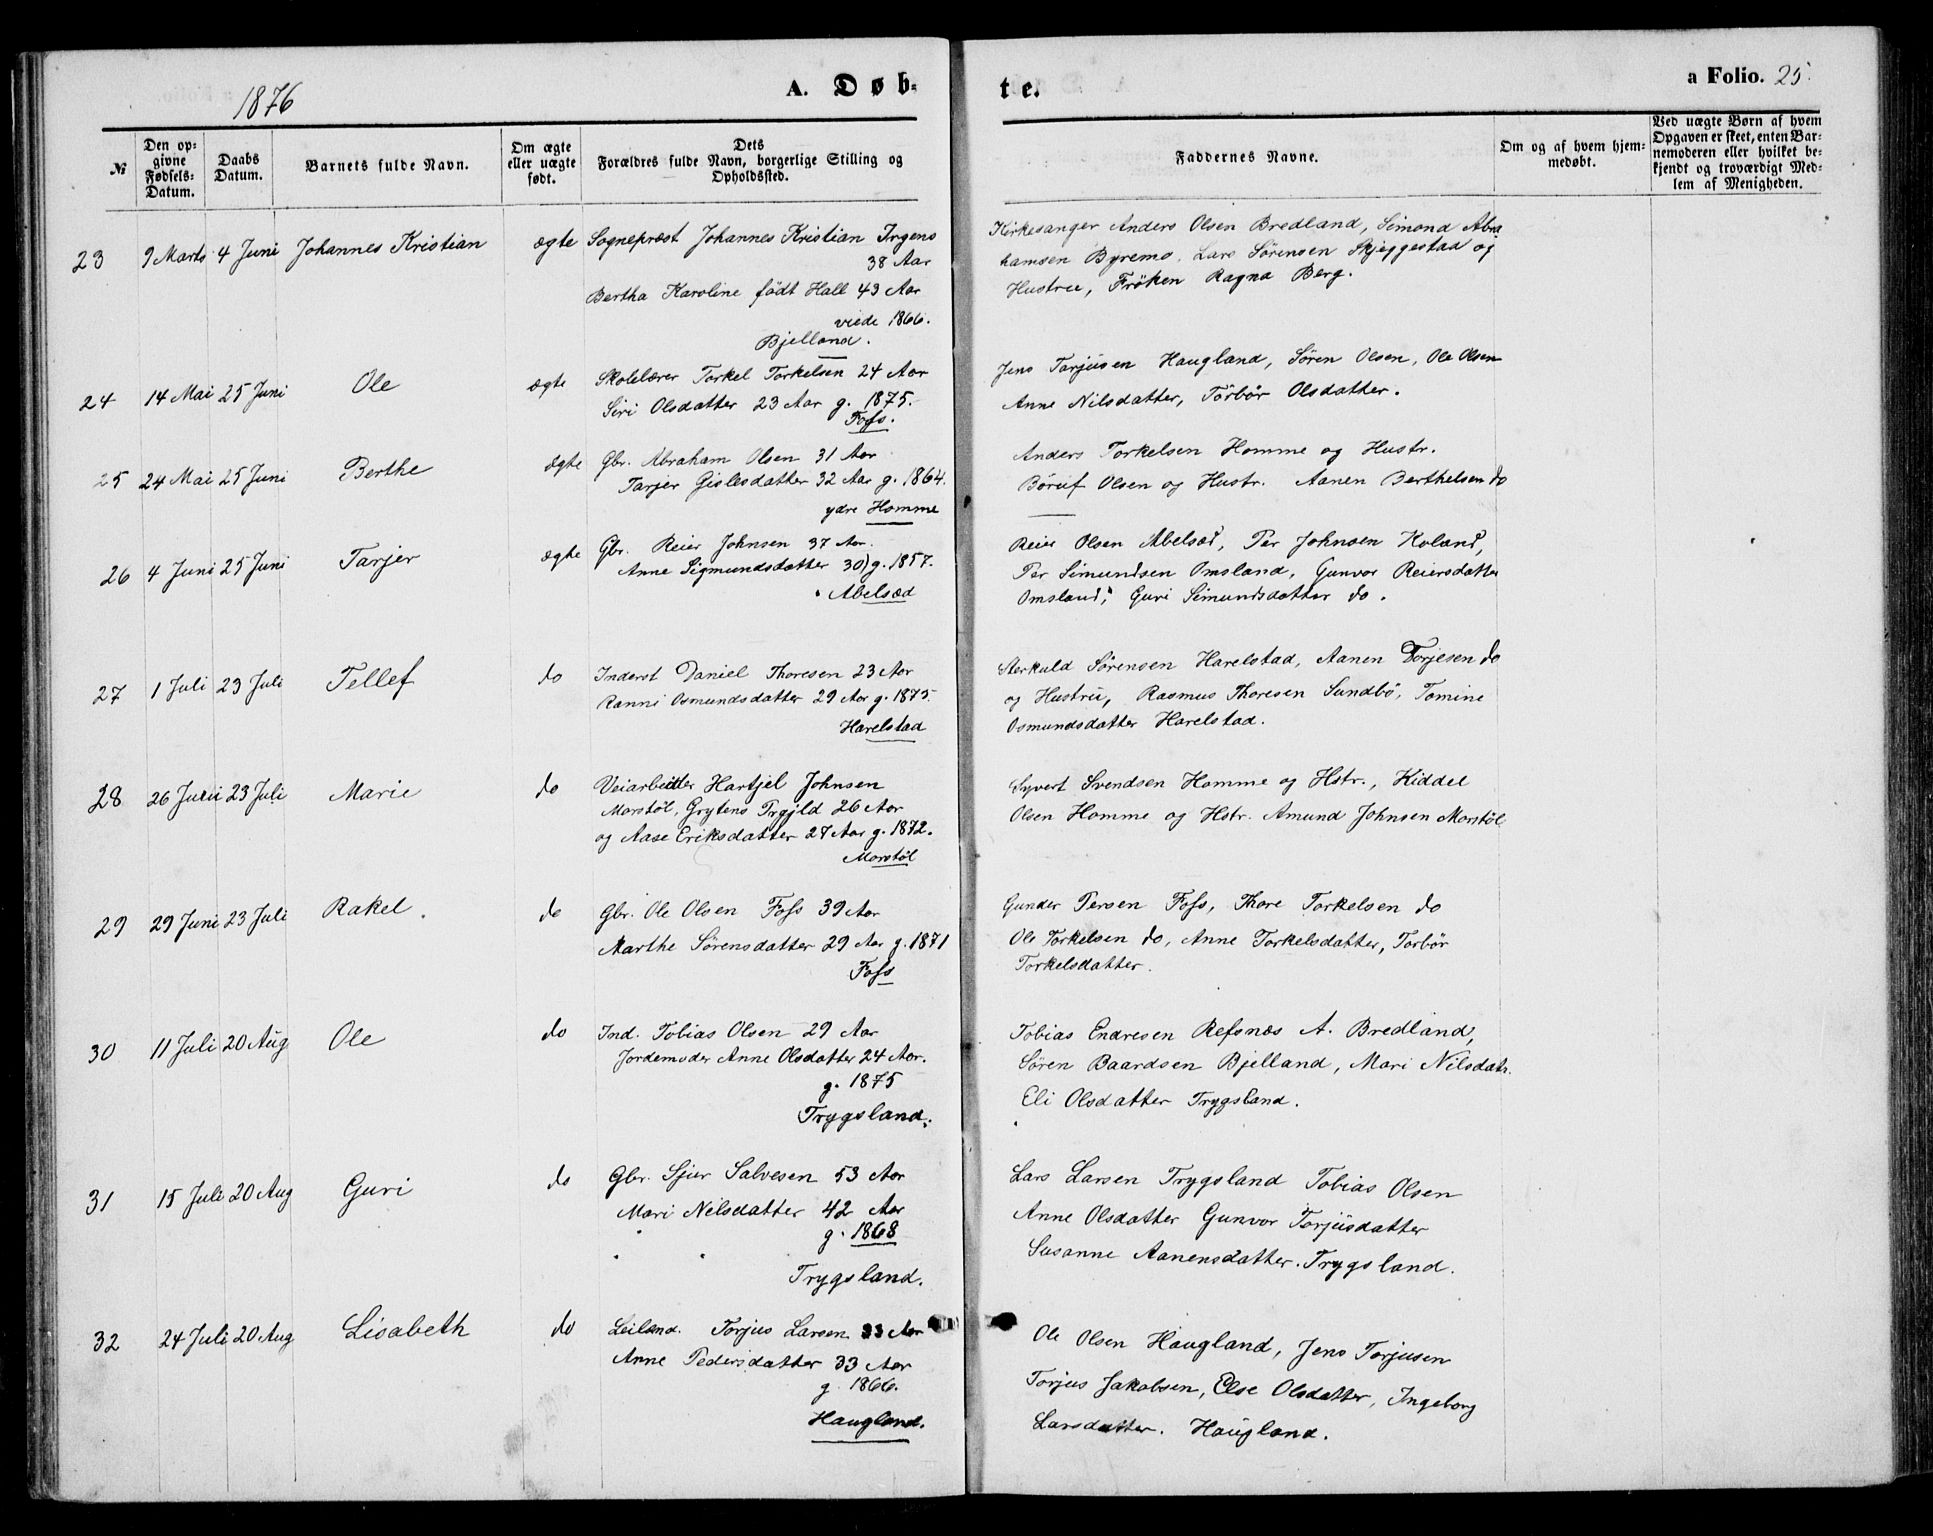 1876
A. Døb-
te.
a Folio. 25.
№
Den op-
givne
Fødsels-
Datum.
Daabs
Datum.
Barnets fulde Navn.
Om ægte
eller uægte
født.
Dets
Forældres fulde Navn, borgerlige Stilling og
Opholdssted.
Faddernes Navne.
Om og af hvem hjem-
medøbt.
Ved uægte Børn af hvem
Opgaven er skeet, enten Bar-
nemoderen eller hvilket be-
kjendt og troværdigt Med-
lem af Menigheden.
23 9 Marts 4 Juni Johannes Kristian ægte Sognepræst Johannes Kristian Irgens
38 Aar
Bertha Karoline født Hall 43 Aar
viede 1866.
Bjelland.
Kirkesanger Anders Olsen Bredland, Simond Abra
hamsen Byremo, Lars Sørensen Skjeggestad og
Hustru, Frøken Ragna Berg.
24 14 Mai 25 Juni Ole ægte Skolelærer Torkel Torkelsen 24 Aar
Siri Olsdatter 23 Aar g. 1875.
Foss.
Jens Tarjusen Haugland, Søren Olsen, Ole Olsen
Anne Nilsdatter, Torbør Olsdatter.
25 24 Mai 25 Juni Berthe ægte Gbr. Abraham Olsen 31 Aar
Tarjer Gislesdatter 32 Aar g. 1864.
ydre Homme
Anders Torkelsen Homme og Hustr.
Børuf Olsen og Hustr. Aanen Berthelsen do
26 4 Juni 25 Juni Tarjer ægte Gbr. Reier Johnsen 37 Aar.
Anne Sigmundsdatter 30) g. 1857.
Abelsæd
Reier Olsen Abelsæd, Per Johnsen Koland,
Per Simundsen Omsland, Gunvor Reiersdatter
Omsland, Guri Simundsdatter do.
27 1 Juli 23 Juli Tellef do Inderst Daniel Thoresen 23 Aar
Ranni Osmundsdatter 29 Aar g. 1875.
Harelstad
Sterkuld Sørensen Harelstad, Aanen Torjesen do
og Hustru, Rasmus Thoresen Sundbø, Tomine
Osmundsdatter Harelstad.
28 26 Juni 23 Juli Marie do Veiarbeider Hartjel Johnsen
Morstøl, Grytens Trgjld 26 Aar
og Aase Eriksdatter 27 Aar g. 1872.
Morstøl
Syvert Svendsen Homme og Hstr., Kiddel
Olsen Homme og Hstr. Amund Johnsen Morstøl
29 29 Juni 23 Juli Rakel. do Gbr. Ole Olsen Foss 39 Aar
Marthe Sørensdatter 29 Aar g. 1871
Foss
Gunder Persen Foss, Thore Torkelsen do
Ole Torkelsen do, Anne Torkelsdatter, Torbør
Torkelsdatter.
30 11 Juli 20 Aug Ole do Ind. Tobias Olsen 29 Aar
Jordemoder Anne Olsdatter 24 Aar.
g. 1875
Trygsland.
Tobias Endresen Refsnæs A. Bredland,
Søren Baardsen Bjelland, Mari Nilsdatr.
Eli Olsdatter Trygsland.
31 15 Juli 20 Aug Guri do Gbr. Sjur Salvesen 53 Aar
Mari Nilsdatter 42 Aar
g. 1868
Trygsland.
Lars Larsen Trygsland Tobias Olsen
Anne Olsdatter Gunvor Torjusdatter
Susanne Aanensdatter. Trygsland.
32 24 Juli 20 Aug Lisabeth do Leilend. Torjus Larsen 33 Aar
Anne Pedersdatter 33 Aar
g. 1866.
Haugland.
Ole Olsen Haugland, Jens Torjusen
Torjus Jakobsen, Else Olsdatter, Ingeborg
Larsdatter. Haugland.